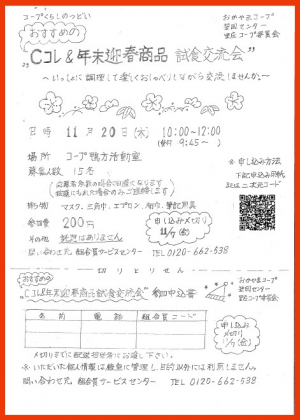 コープくらしのつどい
おかやまコープ
笠岡センター
里庄コープ委員会
おすすめの
"Cコレ&年末迎春商品 試食交流会"
～いっしょに調理して楽しくおしゃべりしながら交流しませんか～
日時 11月20日(水) 10:00～12:00
(受付 9:45～)
場所 コープ鴨方活動室
募集人数 15名
(応募者多数の場合は抽選となります
抽選にもれた場合のみご連絡します)
持ち物 マスク、三角巾、エプロン、布巾、筆記用具
参加費 200円
その他 託児はありません
申し込みメ切り
11/1(金)
※申し込み方法
下記申込み用紙
又は二次元コード
問い合わせ先 組合員サービスセンター TEL 0120-662-538
キリトリせん
おすすめの
"Cコレ&年末迎春商品試食交流会" 参加申込書
おかやまコープ
笠岡センター
里庄コープ委員会
名前 電話 組合員コード
申し込み
メ切り
11/1(金)
メ切りまでに配送担当者にお渡し下さい。
※いただいた個人情報は厳重に管理し、目的以外には利用しません。
問い合わせ先 組合員サービスセンター TEL 0120-662-538